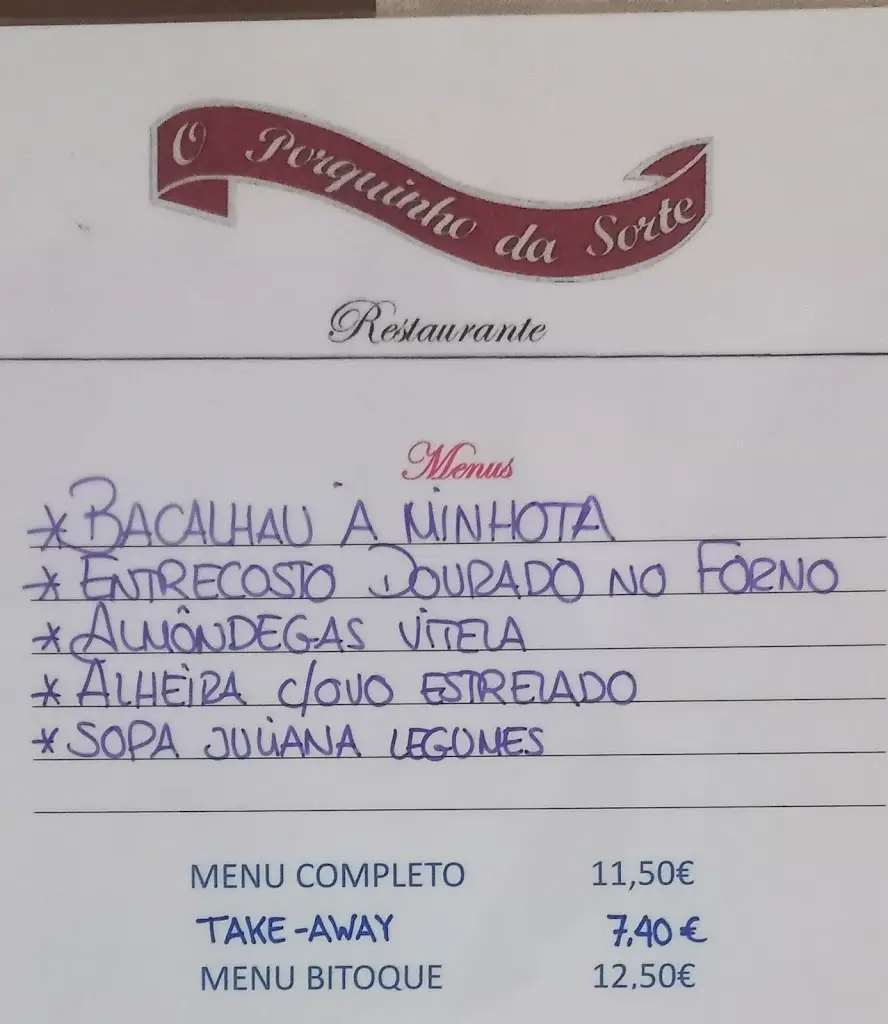 O Porquinho da Sorte
Restaurante
Menus
* BACALHAU À MINHOTA
* ENTRECOSTO DOURADO NO FORNO
* ALMÔNDEGAS VITELA
* ALHEIRA C/OVO ESTRELADO
* SOPA JULIANA LEGUMES
MENU COMPLETO 11,50€
TAKE-AWAY 7,40€
MENU BITOQUE 12,50€